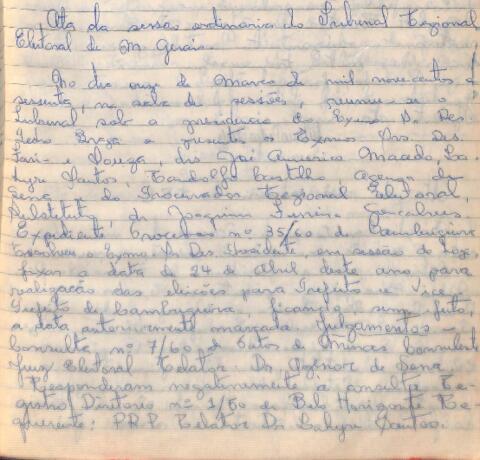 Ata da sessão ordinaria do Tribunal Regional
Eleitoral de M. Gerais.
No dia onze de Março de mil novecentos e
sessenta, na sala de sessões, reuniu-se o
Tribunal sob a presidencia do Exmo Sr. Des.
Pedro Braga e presentes os Exmos Srs. Des.
Faria e Souza, drs José Americo Macedo, Sa-
lyra Santos, Candolfo Castello Agenor de
Sena e do Procurador Regional Eleitoral,
Substituto, dr Joaquim Ferreira Gonçalves
Expediente Processo nº 35/60 de Cambuquira
o Exmo Sr Des. Presidente, em sessão de hoje,
fixar a data de 24 de Abril deste ano para
realização das eleições para Prefeito e Vice
Prefeito de Cambuquira, ficando sem efeito,
a data anteriormente marcada Julgamentos -
Consulta nº 7/60 de Patos de Minas Consulente
Juiz Eleitoral Relator Dr Agenor de Sena
Responderam negativamente a consulta Re-
gistro Diretorio nº 1/60 de Belo Horizonte Re-
querente: PRP Relator Dr Salyra Santos.